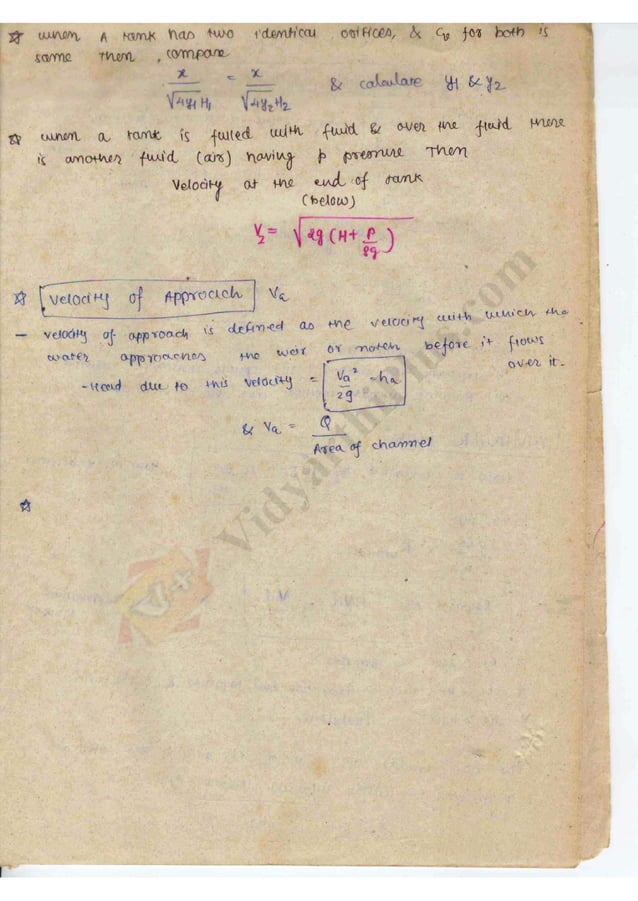 ☆ when A tank has two identical orifices, & Cv for both is
same then, compare
x/√4y1H1 = x/√4y2H2 & calculate y1 & y2
☆ when a tank is fulled with fluid & over the fluid there
is another fluid (air) having p pressure Then
Velocity at the end of tank
(below)
V2 = √2g(H+P/ρg)
☆ Velocity of Approach Va
- velocity of approach is defined as the velocity with which the
water approaches the weir or notch before it flows
over it.
- Head due to this velocity = Va²/2g = ha
& Va = Q/Area of channel
☆
VidyarthiPlus.com
V+